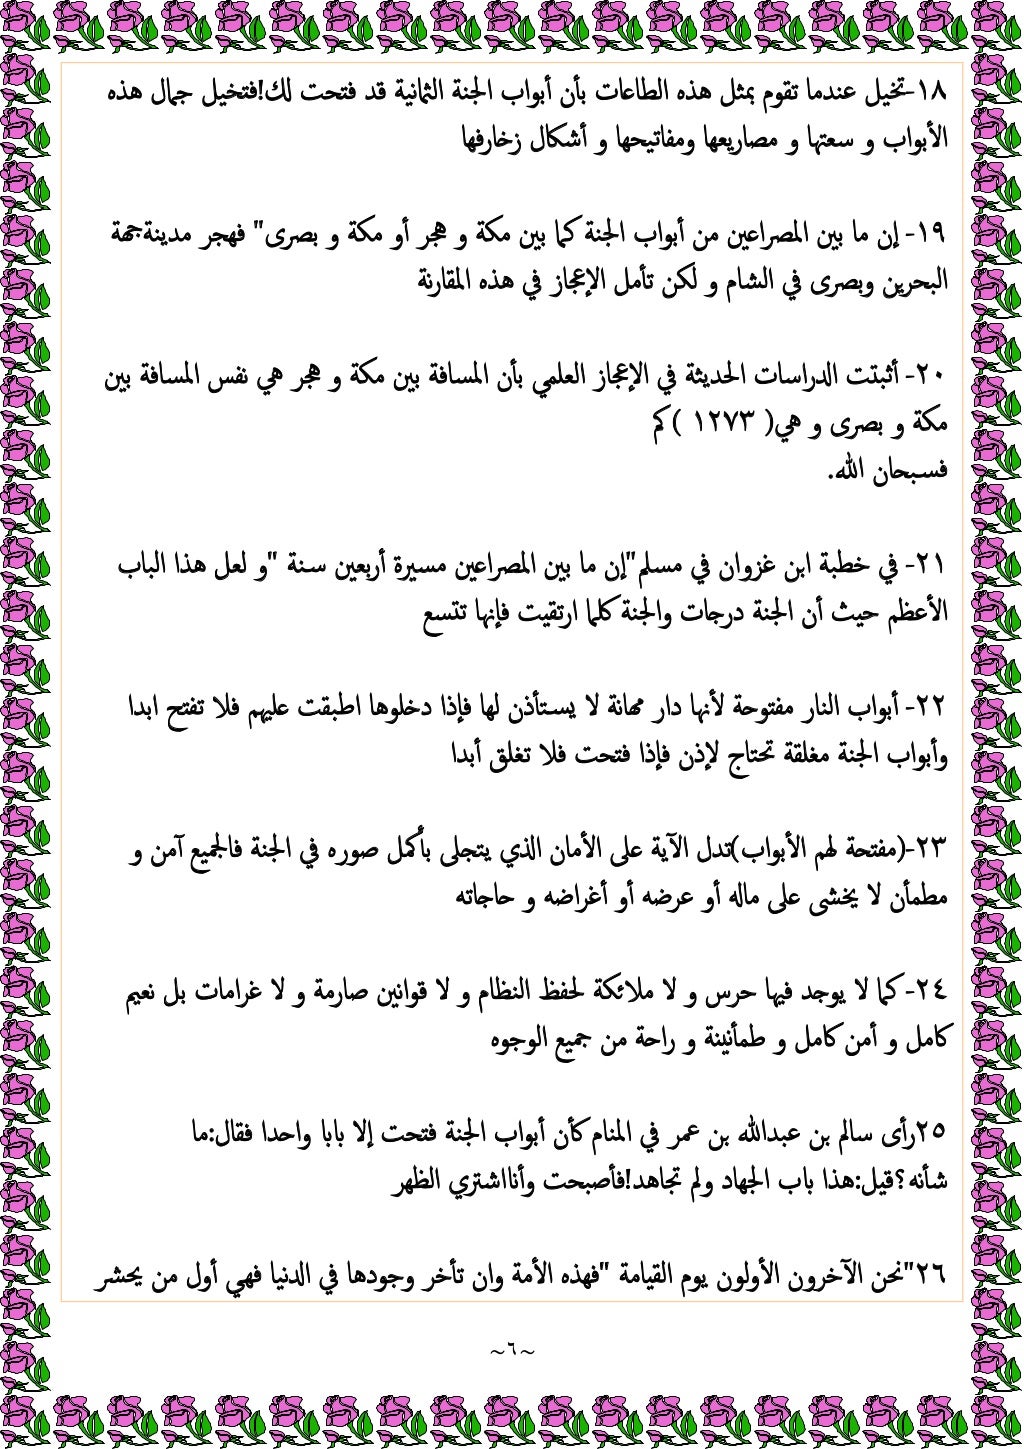 ١٨-تخيل عندما تقوم بمثل هذه الطاعات بأن أبواب الجنة الثمانية قد فتحت لك!فتخيل جمال هذه
الأبواب و سعتها و مصاريعها ومفاتيحها و أشكال زخارفها
١٩- إن ما بين المصراعين من أبواب الجنة كما بين مكة و هجر أو مكة و بصرى" فهجر مدينةجهة
البحرين وبصرى في الشام و لكن تأمل الإعجاز في هذه المقارنة
٢٠- أثبتت الدراسات الحديثة في الإعجاز العلمي بأن المسافة بين مكة و هجر هي نفس المسافة بين
مكة و بصرى و هي( ١٢٧٣ )كم
فسبحان الله.
٢١- في خطبة ابن غزوان في مسلم"إن ما بين المصراعين مسيرة أربعين سنة "و لعل هذا الباب
الأعظم حيث أن الجنة درجات والجنة كلما ارتقيت فإنها تتسع
٢٢- أبواب النار مفتوحة لأنها دار مهانة لا يستأذن لها فإذا دخلوها اطبقت عليهم فلا تفتح ابدا
وأبواب الجنة مغلقة تحتاج لإذن فإذا فتحت فلا تغلق أبدا
٢٣-(مفتحة لهم الأبواب)تدل الآية على الأمان الذي يتجلى بأكمل صوره في الجنة فالجميع آمن و
مطمأن لا يخشى على ماله أو عرضه أو أغراضه و حاجاته
٢٤- كما لا يوجد فيها حرس و لا ملائكة لحفظ النظام و لا قوانين صارمة و لا غرامات بل نعيم
كامل و أمن كامل و طمأنينة و راحة من جميع الوجوه
٢٥رأى سالم بن عبدالله بن عمر في المنام كأن أبواب الجنة فتحت إلا بابا واحدا فقال:ما
شأنه؟قيل:هذا باب الجهاد ولم تجاهد!فأصبحت وأنااشتري الظهر
٢٦"نحن الآخرون الأولون يوم القيامة "فهذه الأمة وان تأخر وجودها في الدنيا فهي أول من يحشر
~٦~